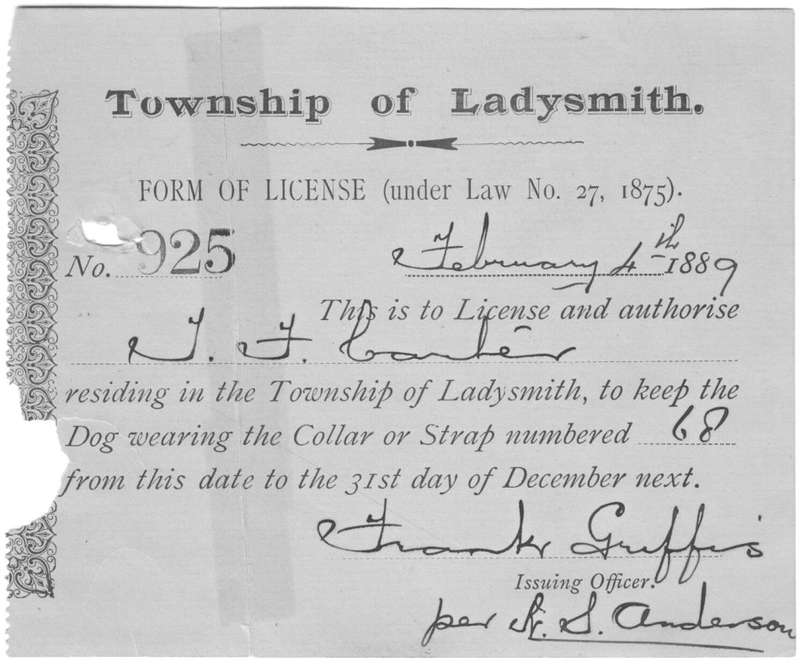 Township of Ladysmith.
FORM OF LICENSE (under Law No. 27, 1875).
No. 925 February 4th 1889
This is to License and authorise
T. F. Carter
residing in the Township of Ladysmith, to keep the
Dog wearing the Collar or Strap numbered 68
from this date to the 31st day of December next.
Frank Griffis
Issuing Officer.
per S. Anderson